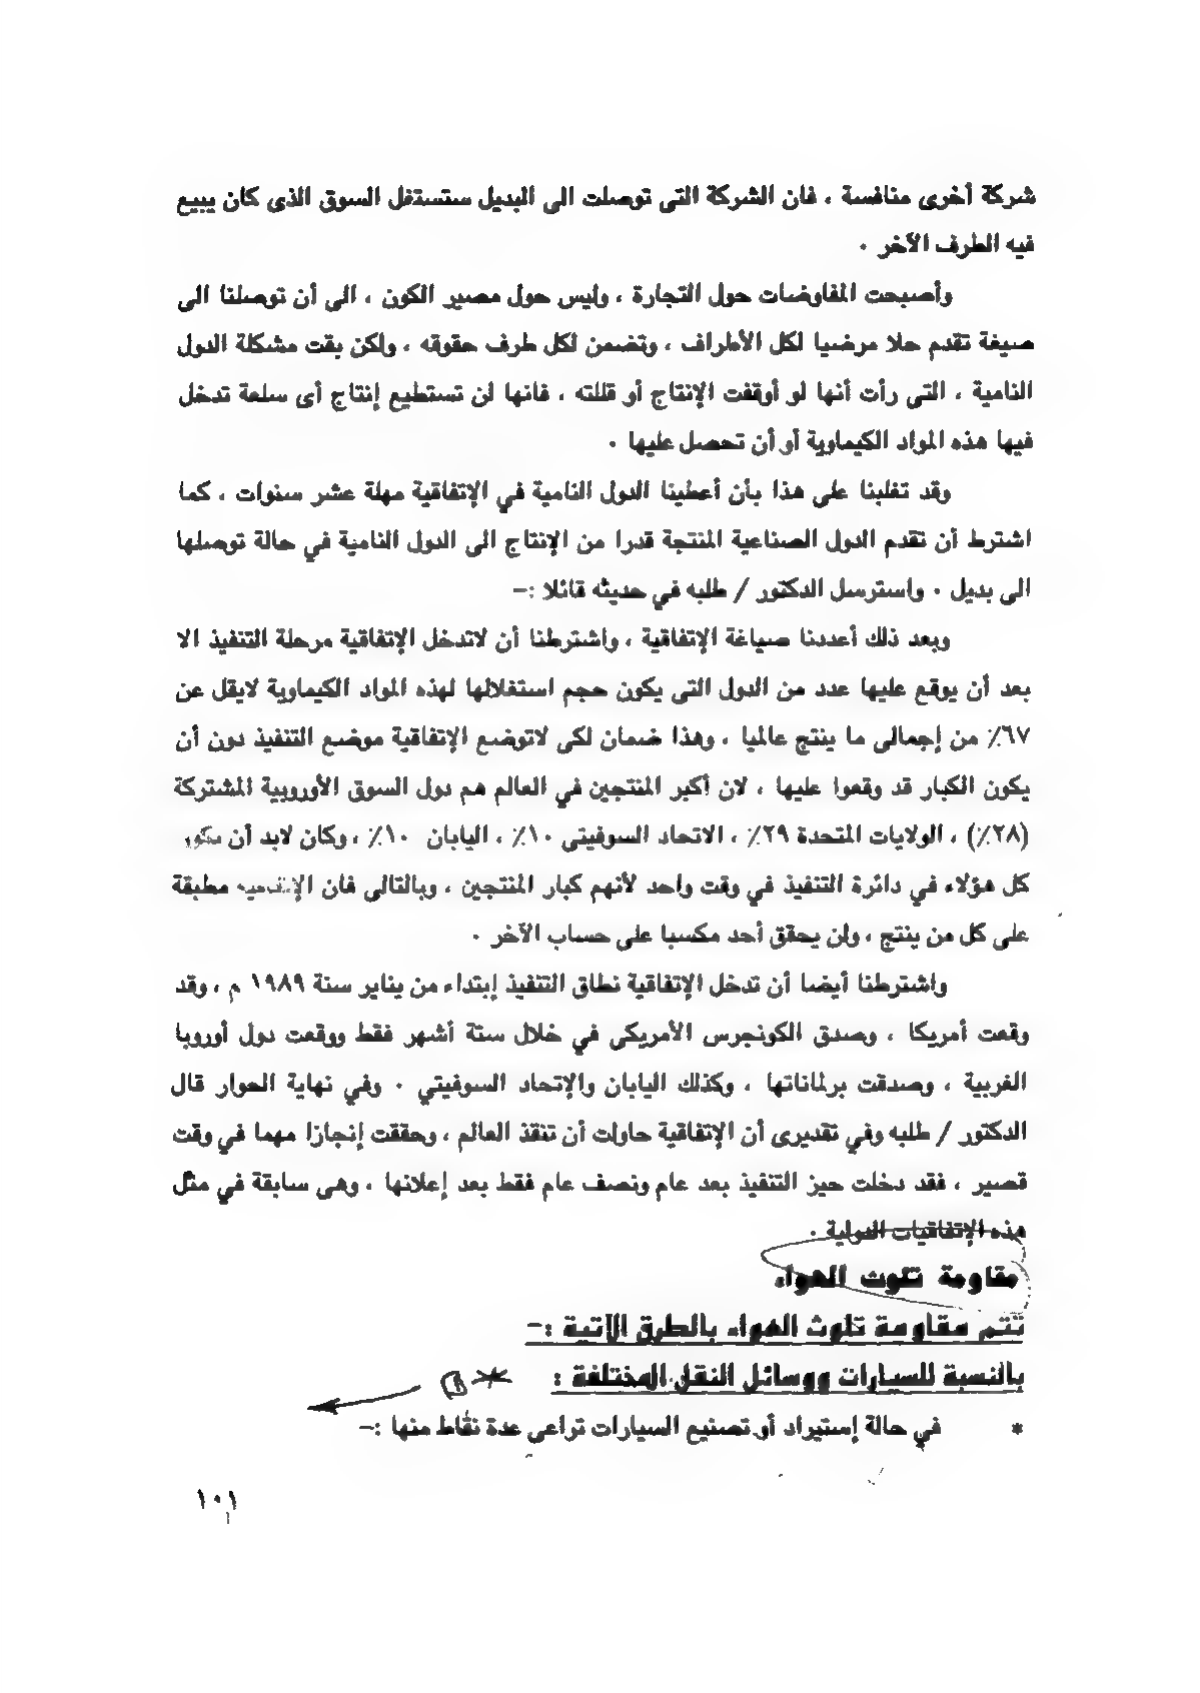 شركة أخرى منافسة ، فان الشركة التى توصلت الى البديل ستستغل السوق الذى كان يبيع
فيه الطرف الآخر .
وأصبحت المفاوضات حول التجارة ، وليس حول مصير الكون ، الى أن توصلنا الى
صيغة تقدم حلا مرضيا لكل الأطراف ، وتضمن لكل طرف حقوقه ، ولكن بقت مشكلة الدول
النامية ، التى رأت أنها لو أوقفت الإنتاج أو قللته ، فانها لن تستطيع إنتاج أى سلعة تدخل
فيها هذه المواد الكيماوية أو أن تحصل عليها .
وقد تغلبنا على هذا بأن أعطينا الدول النامية في الإتفاقية مهلة عشر سنوات ، كما
اشترط أن تقدم الدول الصناعية المنتجة قدرا من الإنتاج الى الدول النامية في حالة توصلها
الى بديل . واسترسل الدكتور / طلبه في حديثه قائلا :-
وبعد ذلك أعددنا صياغة الإتفاقية ، واشترطنا أن لاتدخل الإتفاقية مرحلة التنفيذ الا
بعد أن يوقع عليها عدد من الدول التى يكون حجم استغلالها لهذه المواد الكيماوية لايقل عن
٦٧٪ من إجمالى ما ينتج عالميا ، وهذا ضمان لكى لاتوضع الإتفاقية موضع التنفيذ دون أن
يكون الكبار قد وقعوا عليها ، لان أكبر المنتجين في العالم هم دول السوق الأوروبية المشتركة
(٢٨٪) ، الولايات المتحدة ٢٩٪ ، الاتحاد السوفيتى ١٠٪ ، اليابان ١٠٪ ، وكان لابد أن
كل هؤلاء في دائرة التنفيذ في وقت واحد لأنهم كبار المنتجين ، وبالتالى فان مطبقة
على كل من ينتج ، ولن يحقق أحد مكسبا على حساب الآخر .
واشترطنا أيضا أن تدخل الإتفاقية نطاق التنفيذ إبتداء من يناير سنة ١٩٨٩ م ، وقد
وقعت أمريكا ، وصدق الكونجرس الأمريكى في خلال ستة أشهر فقط ووقعت دول أوروبا
الغربية ، وصدقت برلماناتها ، وكذلك اليابان والإتحاد السوفيتي . وفي نهاية الحوار قال
الدكتور / طلبه وفي تقديرى أن الإتفاقية حاولت أن تنقذ العالم ، وحققت إنجازا مهما في وقت
قصير ، فقد دخلت حيز التنفيذ بعد عام ونصف عام فقط بعد إعلانها ، وهى سابقة في مثل
هذه الإتفاقيات الدولية .
مقاومة تلوث الهواء
تتم مقاومة تلوث الهواء بالطرق الآتية :-
بالنسبة للسيارات ووسائل النقل المختلفة :
* في حالة إستيراد أو تصنيع السيارات تراعى عدة نقاط منها :-
١٠١